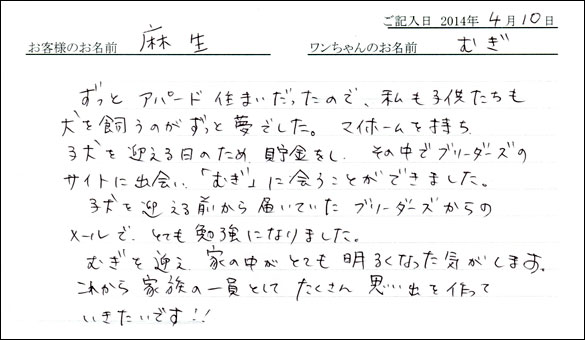 ご記入日 2014年 4月10日
お客様のお名前 麻生 ワンちゃんのお名前 むぎ
ずっと アパード 住まいだったので、私も子供たちも
犬を飼うのがずっと夢でした。マイホームを持ち
子犬を迎える日のため、貯金をし、その中でブリーダーズの
サイトに出会い、「むぎ」に会うことができました。
子犬を迎える前から届いていたブリーダーズからの
メールで、とても勉強になりました。
むぎを迎え、家の中がとても明るくなった気がします。
これから家族の一員として たくさん 思い出を作って
いきたいです!!